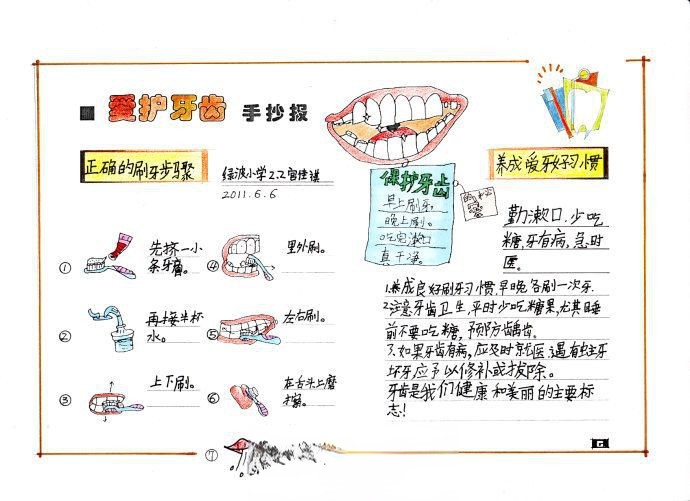 爱护牙齿 手抄报
正确的刷牙步骤
绿波小学2.2
2011.6.6
① 先挤一小
条牙膏。
② 再接半杯
水。
③ 上下刷。
④ 里外刷。
⑤ 左右刷。
⑥ 在舌头上磨
擦。
⑦
保护牙齿
早上刷牙。
晚上刷。
吃完漱口
真干净。
养成爱牙好习惯
勤漱口.少吃
糖,牙有病,急时
医。
1.养成良好刷牙习惯,早晚各刷一次牙.
2.注意牙齿卫生,平时少吃糖果,尤其睡
前不要吃糖,预防龋齿.
3.如果牙齿有病,应及时就医遇有蛀牙
坏牙应予以修补或拔除。
牙齿是我们健康和美丽的主要标
志!